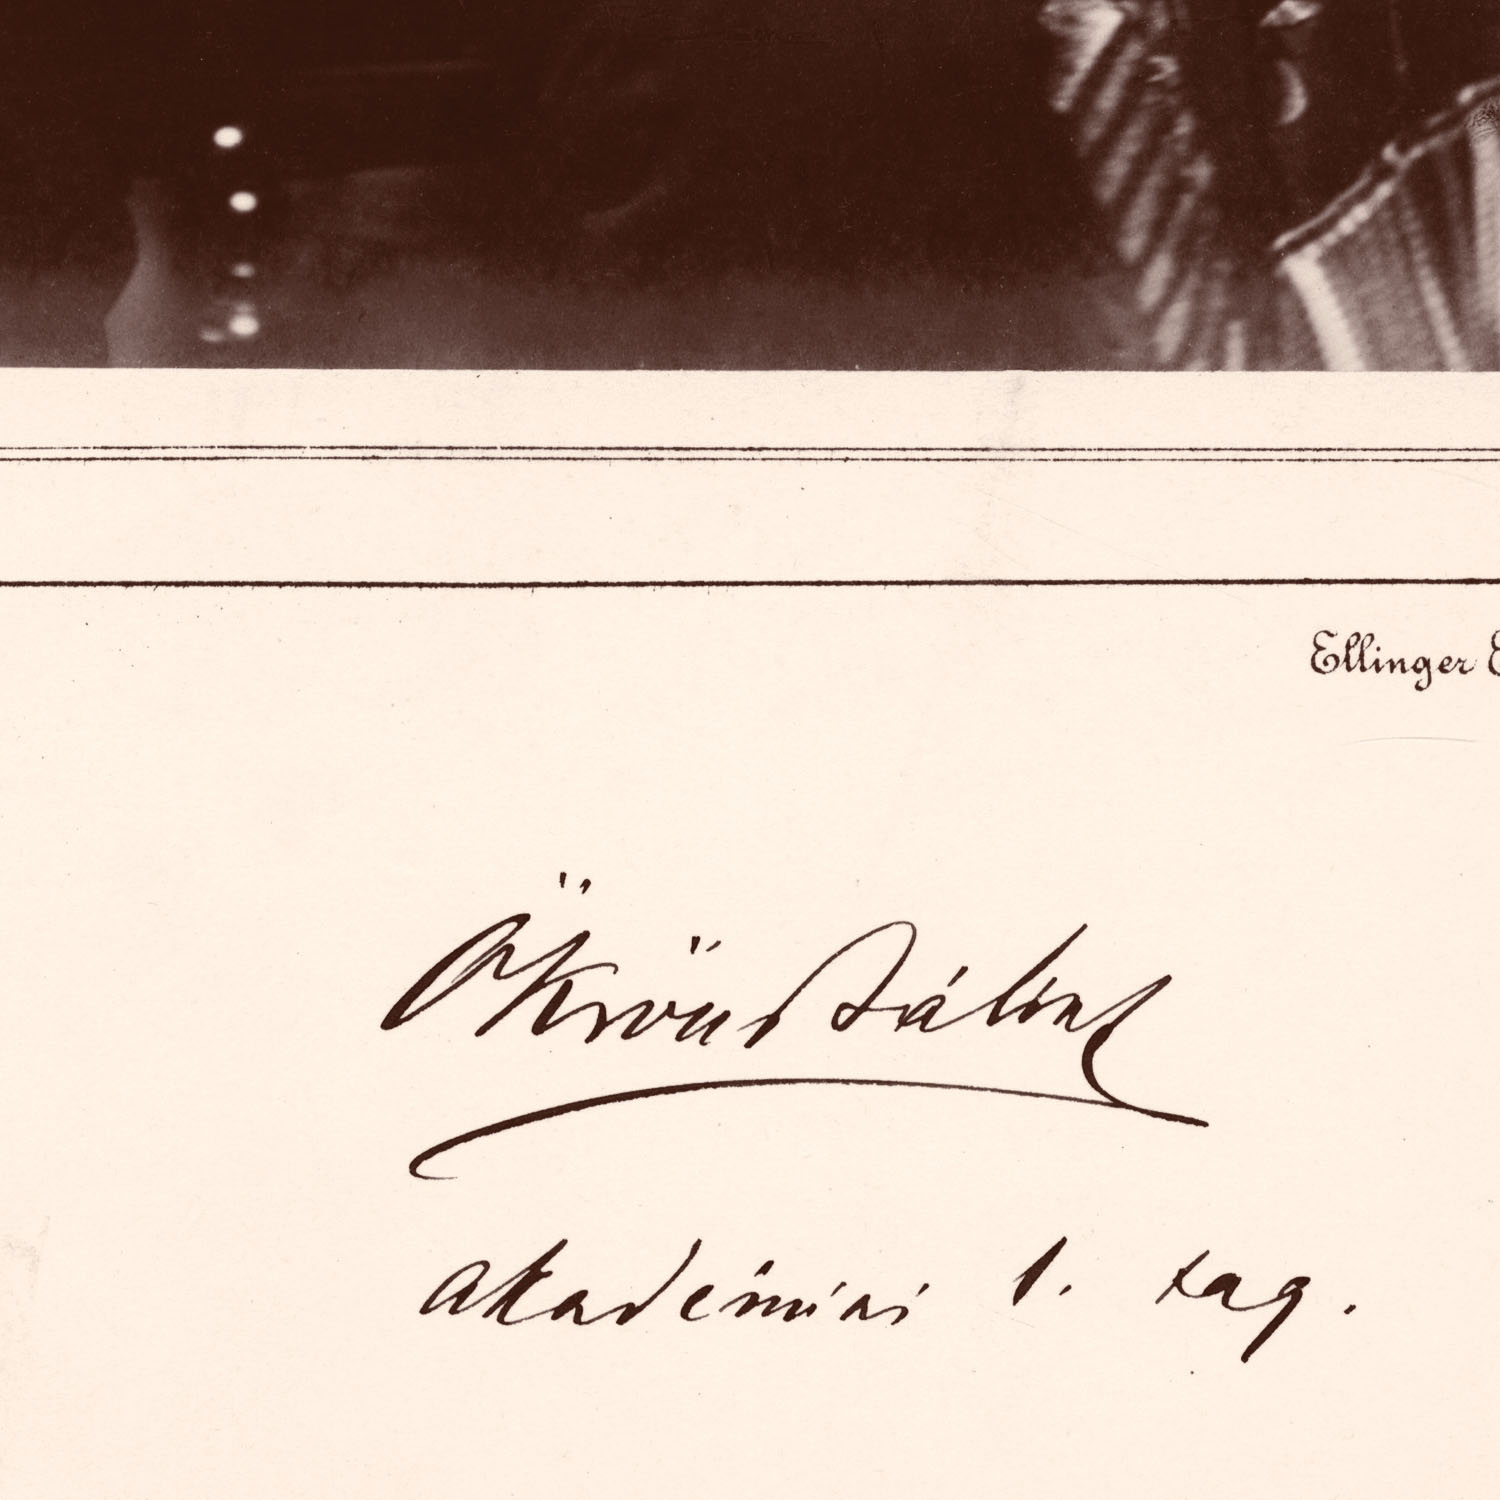 Ellinger E
Ökrös Bálint
akadémiai l. tag.